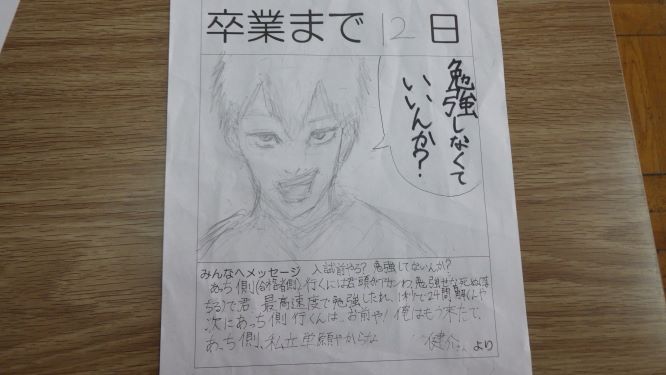 卒業まで12日
勉強しなくて
いいんか?
みんなへメッセージ 入試前やろ? 勉強してないんか?
あっち側(合格者側)行くには君頭 わ、勉強せな死ぬ(落
ちる)で君、最高速度で勉強したれ、 24時間 働くんや
次にあっち側行くんは、お前や! 俺はもう来たで、
あっち側、私立単願やからな 健介、より